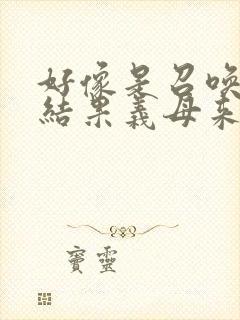 好像是召唤
結果義母來
寶靈